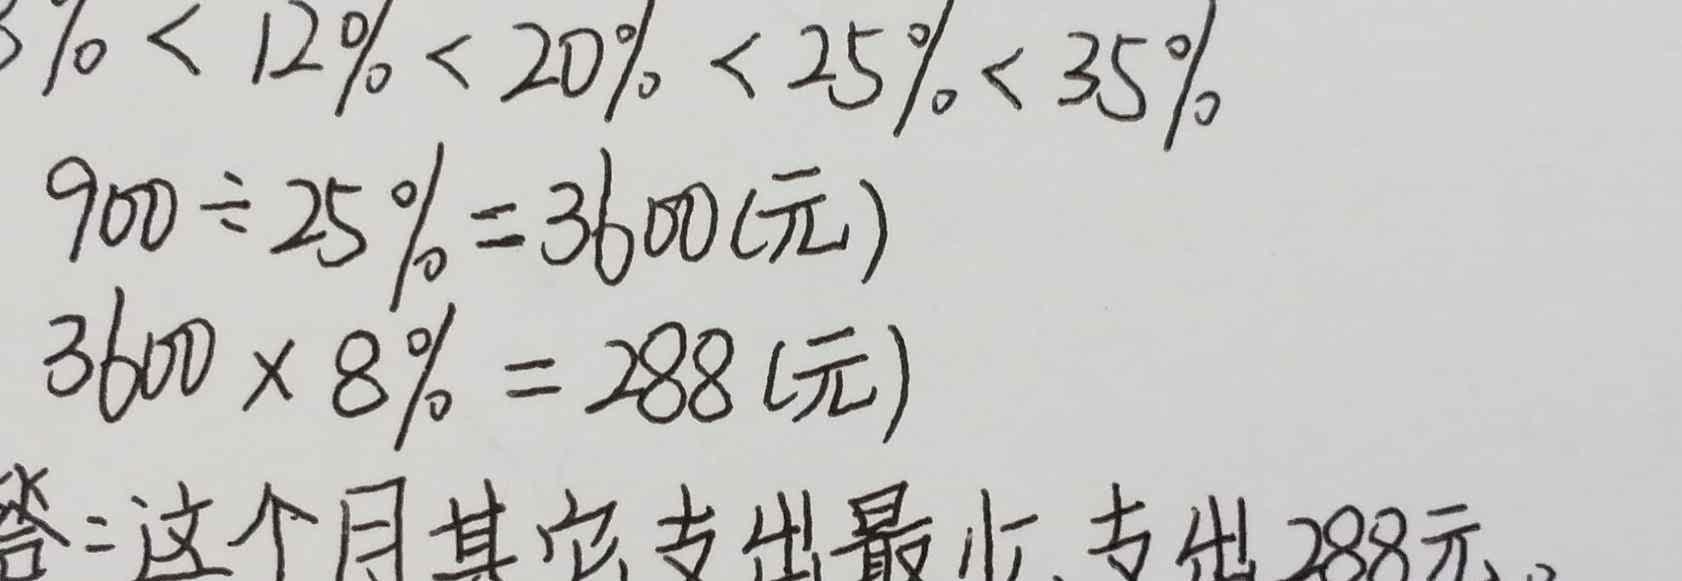 8% < 12% < 20% < 25% < 35%
900 ÷ 25% = 3600(元)
3600 × 8% = 288(元)
答:这个月其它支出最少,支出288元。